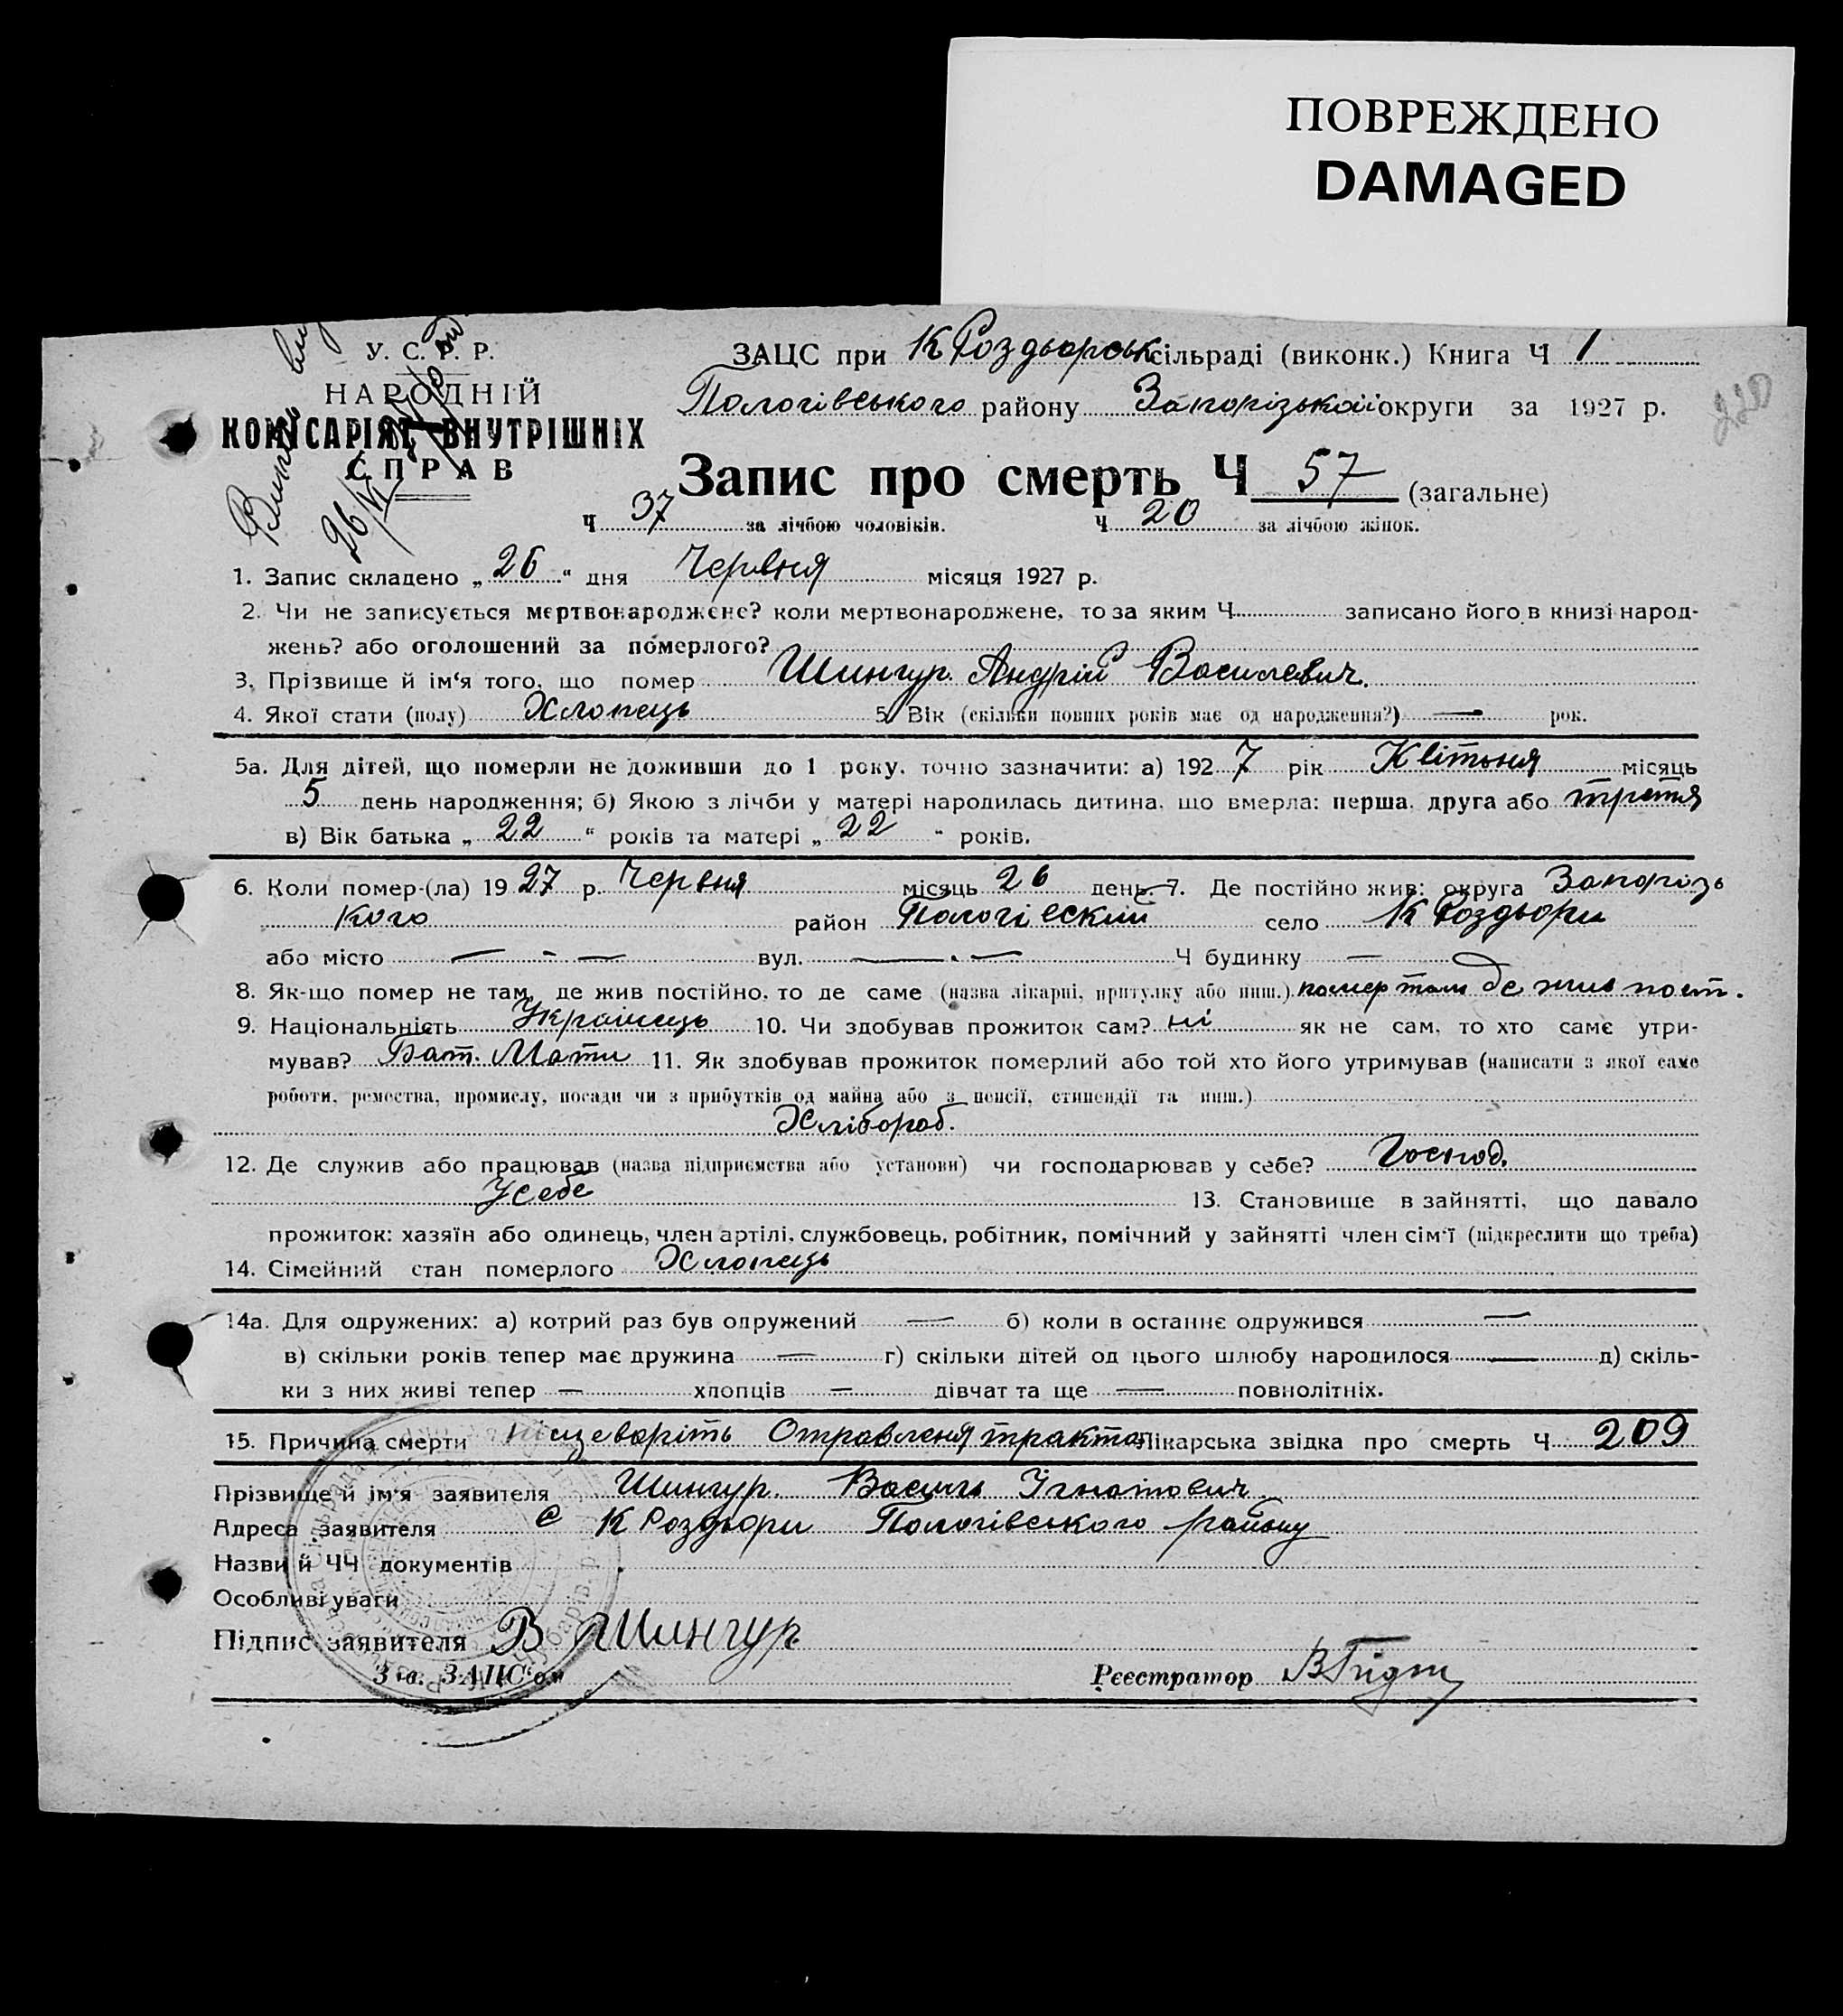 ПОВРЕЖДЕНО
DAMAGED
У. С. Р. Р.
НАРОДНІЙ
КОМІСАРІЯТ ВНУТРІШНІХ
СПРАВ
26/VI
ЗАЦС при К Роздьорськ сільраді (виконк.) Книга Ч 1
Пологівського району Запорізької округи за 1927 р.
220
Запис про смерть Ч 57 (загальне)
Ч 37 за лічбою чоловіків. Ч 20 за лічбою жінок.
1. Запис складено „ 26 “ дня Червня місяця 1927 р.
2. Чи не записується мертвонароджене? коли мертвонароджене, то за яким Ч записано його в книзі народ-
жень? або оголошений за померлого?
3. Прізвище й ім‘я того, що помер Шингур Андрій Василевич.
4. Якої стати (полу) Хлопець 5. Вік (скільки повних років має од народження?) — рок.
5а. Для дітей, що померли не доживши до 1 року, точно зазначити: а) 192 7 рік Квітьня місяць
5 день народження; б) Якою з лічби у матері народилась дитина, що вмерла: перша, друга або третя
в) Вік батька „ 22 “ років та матері „ 22 “ років.
6. Коли помер-(ла) 19 27 р. Червня місяць 26 день 7. Де постійно жив: округа Запорізь
кого район Пологівский село К Роздьори
або місто — - — вул. — . — Ч будинку —
8. Як-що помер не там, де жив постійно, то де саме (назва лікарні, притулку або инш.) помер там де жив пост.
9. Національність Українець 10. Чи здобував прожиток сам? ні як не сам, то хто саме утри-
мував? Бат. Мати 11. Як здобував прожиток померлий або той хто його утримував (написати з якої саме
роботи, ремества, промислу, посади чи з прибутків од майна або з пенсії, стипендії та инш.)
Хлібороб.
12. Де служив або працював (назва підприємства або установи) чи господарював у себе? Господ.
У себе 13. Становище в зайнятті, що давало
прожиток: хазяїн або одинець, член артілі, службовець, робітник, помічний у зайнятті член сім‘ї (підкреслити що треба)
14. Сімейний стан померлого Хлопець
14а. Для одружених: а) котрий раз був одружений — б) коли в останнє одружився —
в) скільки років тепер має дружина — г) скільки дітей од цього шлюбу народилося — д) скіль-
ки з них живі тепер — хлопців — дівчат та ще — повнолітніх.
15. Причина смерти Отравленя тракта Лікарська звідка про смерть Ч 209
Прізвище й ім‘я заявителя Шингур Василь Ігнатович
Адреса заявителя с К Роздьори Пологівського району
Назви й ЧЧ документів
Особливі уваги
Підпис заявителя В Шингур
Зав. ЗАЦС‘ом Реєстратор